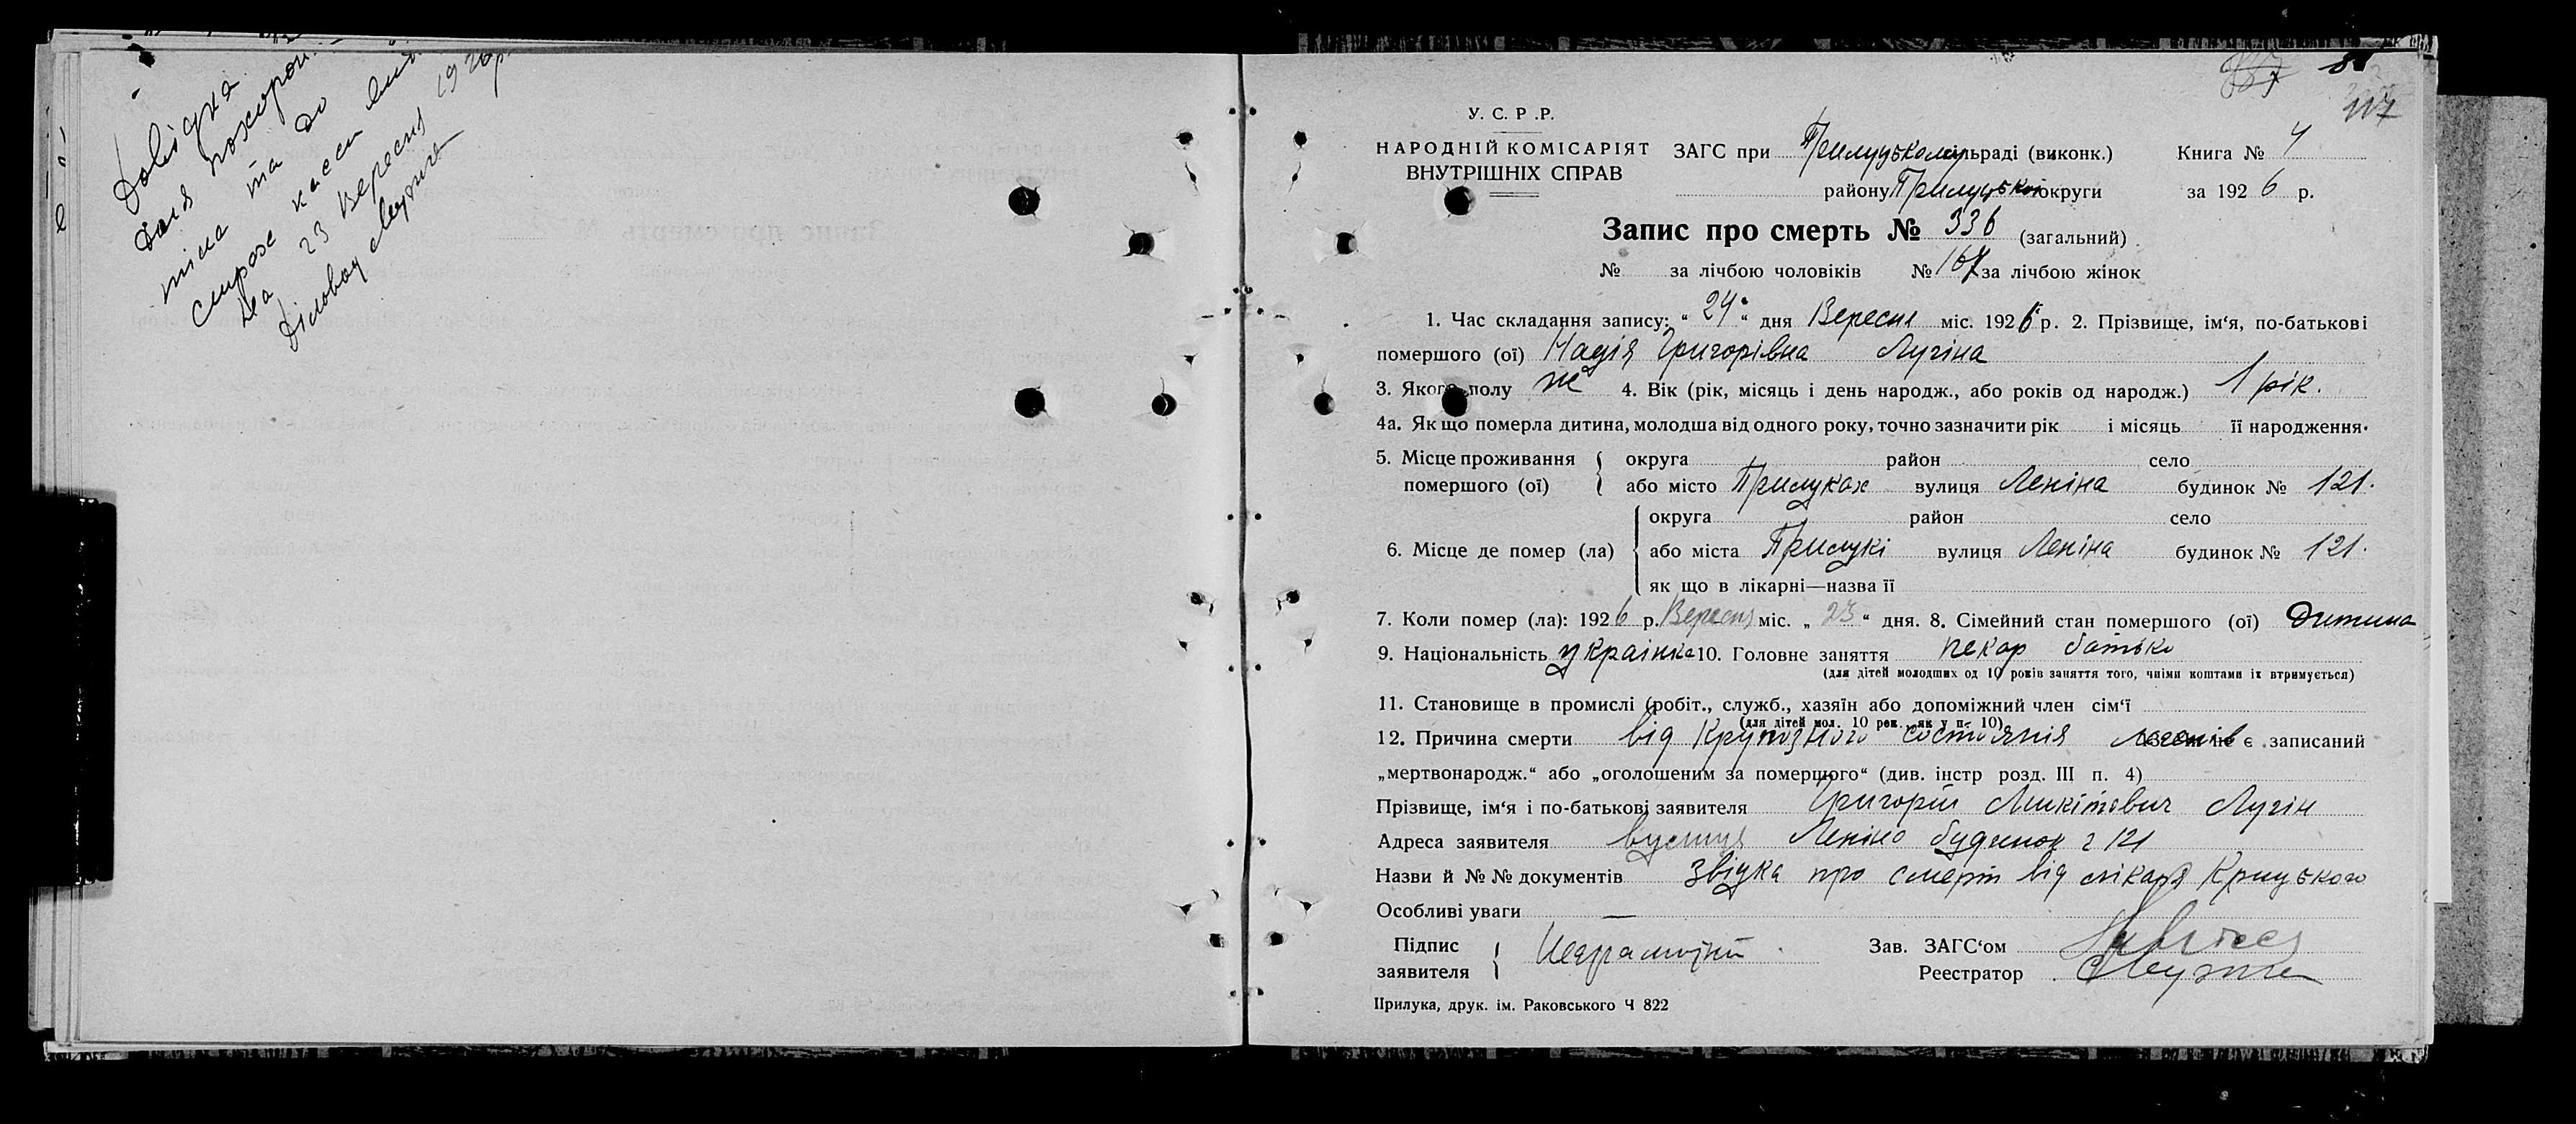 Довідка
для похорон.
та до
страх каси
на 23 Вересня 1926 р.
Діловод
117
У. С. Р. Р.
НАРОДНІЙ КОМІСАРІЯТ
ВНУТРІШНІХ СПРАВ
ЗАГС при Прилуцькому сільраді (виконк.) Книга № 4
району Прилуцької округи за 1926 р.
Запис про смерть № 336 (загальний)
№ за лічбою чоловіків № 167 за лічбою жінок
1. Час складання запису: “ 24 “ дня Вересня міс. 1926 р. 2. Прізвище, ім‘я, по-батькові
помершого (ої) Надія Григорівна Лугіна
3. Якого полу ж 4. Вік (рік, місяць і день народж., або років од народж.) 1 рік.
4а. Як що померла дитина, молодша від одного року, точно зазначити рік і місяць її народження.
5. Місце проживання помершого (ої) { округа район село
або місто Прилуках вулиця Леніна будинок № 121.
6. Місце де помер (ла) { округа район село
або міста Прилукі вулиця Леніна будинок № 121.
як що в лікарні—назва її
7. Коли помер (ла): 1926 р. Вересня міс. „ 23 “ дня. 8. Сімейний стан помершого (ої) Дитина
9. Національність украінка 10. Головне заняття пекар батько
(для дітей молодших од 10 років заняття того, чиїми коштами їх втримується)
11. Становище в промислі (робіт., служб., хазяїн або допоміжний член сім‘ї
(для дітей мол. 10 рок. як у п. 10)
12. Причина смерти від Крупозного состоянія легенів є записаний
„мертвонародж.“ або „оголошеним за помершого“ (див. інстр розд. III п. 4)
Прізвище, ім‘я і по-батькові заявителя Григорій Микітович Лугін
Адреса заявителя вулиця Леніна будинок 121
Назви й №№ документів Звідка про смерт від лікаря Крицького
Особливі уваги —
Підпис заявителя { Неграмотний
Зав. ЗАГС‘ом
Реестратор
Прилука, друк. ім. Раковського Ч 822